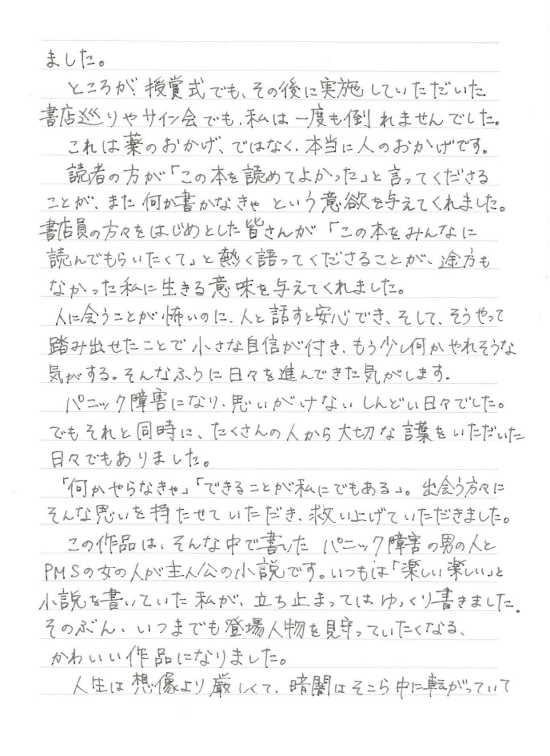 ました。
ところが授賞式でも、その後に実施していただいた
書店巡りやサイン会でも、私は一度も倒れませんでした。
これは薬のおかげ、ではなく、本当に人のおかげです。
読者の方が「この本を読めてよかった」と言ってくださる
ことが、また何か書かなきゃという意欲を与えてくれました。
書店員の方々をはじめとした皆さんが「この本をみんなに
読んでもらいたくて」と熱く語ってくださることが、途方も
なかった私に生きる意味を与えてくれました。
人に会うことが怖いのに、人と話すと安心でき、そして、そうやって
踏み出せたことで小さな自信が付き、もう少し何かやれそうな
気がする。そんなふうに日々を進んできた気がします。
パニック障害になり、思いがけないしんどい日々でした。
でもそれと同時に、たくさんの人から大切な言葉をいただいた
日々でもありました。
「何かやらなきゃ」「できることが私にでもある」。出会う方々に
そんな思いを持たせていただき、救い上げていただきました。
この作品は、そんな中で書いたパニック障害の男の人と
PMSの女の人が主人公の小説です。いつもは「楽しい楽しい」と
小説を書いていた私が、立ち止まってはゆっくり書きました。
そのぶん、いつまでも登場人物を見守っていたくなる、
かわいい作品になりました。
人生は想像より厳しくて、暗闇はそこら中に転がっていて